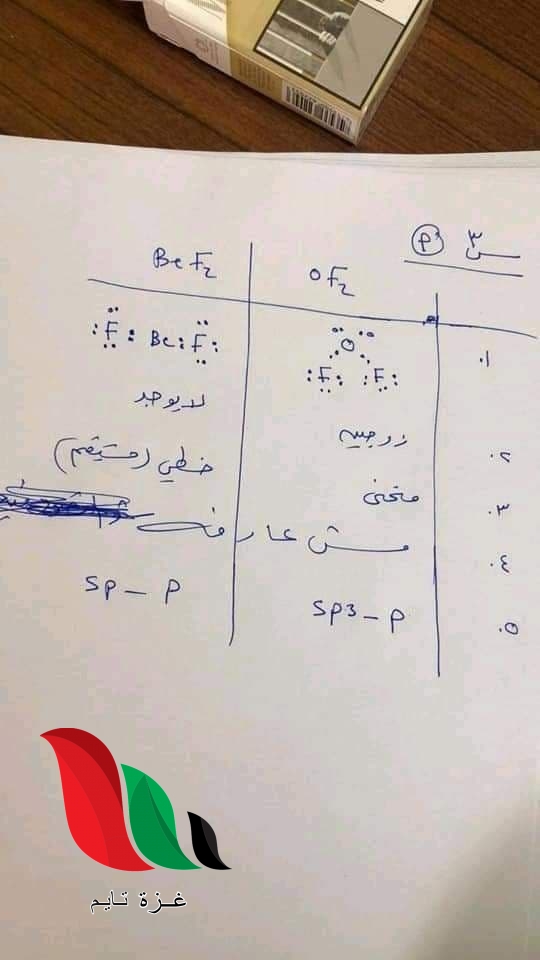 س٣ (٩)
OF2 | BeF2
١. :F: O :F: | :F: Be :F:
٢. زوجين | لا يوجد
٣. منحني | خطي (مستقيم)
٤. مش عارف
٥. sp3 – p | sp – p
غزة تايم